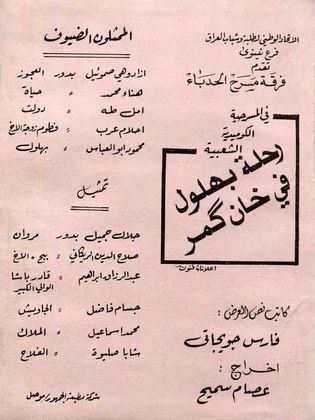 الاتحاد الوطني لطلبة وشباب العراق
فرع نينوى
تقدم
فرقة مسرح الحدباء
في المسرحية
الكوميدية
الشعبية
رحلة بهلول
في خان گمر
اعلانات فنون
كاتب نص العرض:
فارس جويجاتي
اخراج:
عصام سميح
الممثلون الضيوف
ازادوهي صموئيل بدور العجوز
هناء محمد " حياة
امل طه " دولت
احلام عرب " فطوم زوجة الاغا
محمود ابو العباس " بهلول
تمثيل
جلال جميل بدور مروان
صلاح الدين
عبد الرزاق ابراهيم " قادر باشا
الوالي الكبير
حسام فاضل " الجاويش
محمد اسماعيل " الملاك
شابا صليوة " الفلاح
شركة مطبعة الجمهور موصل